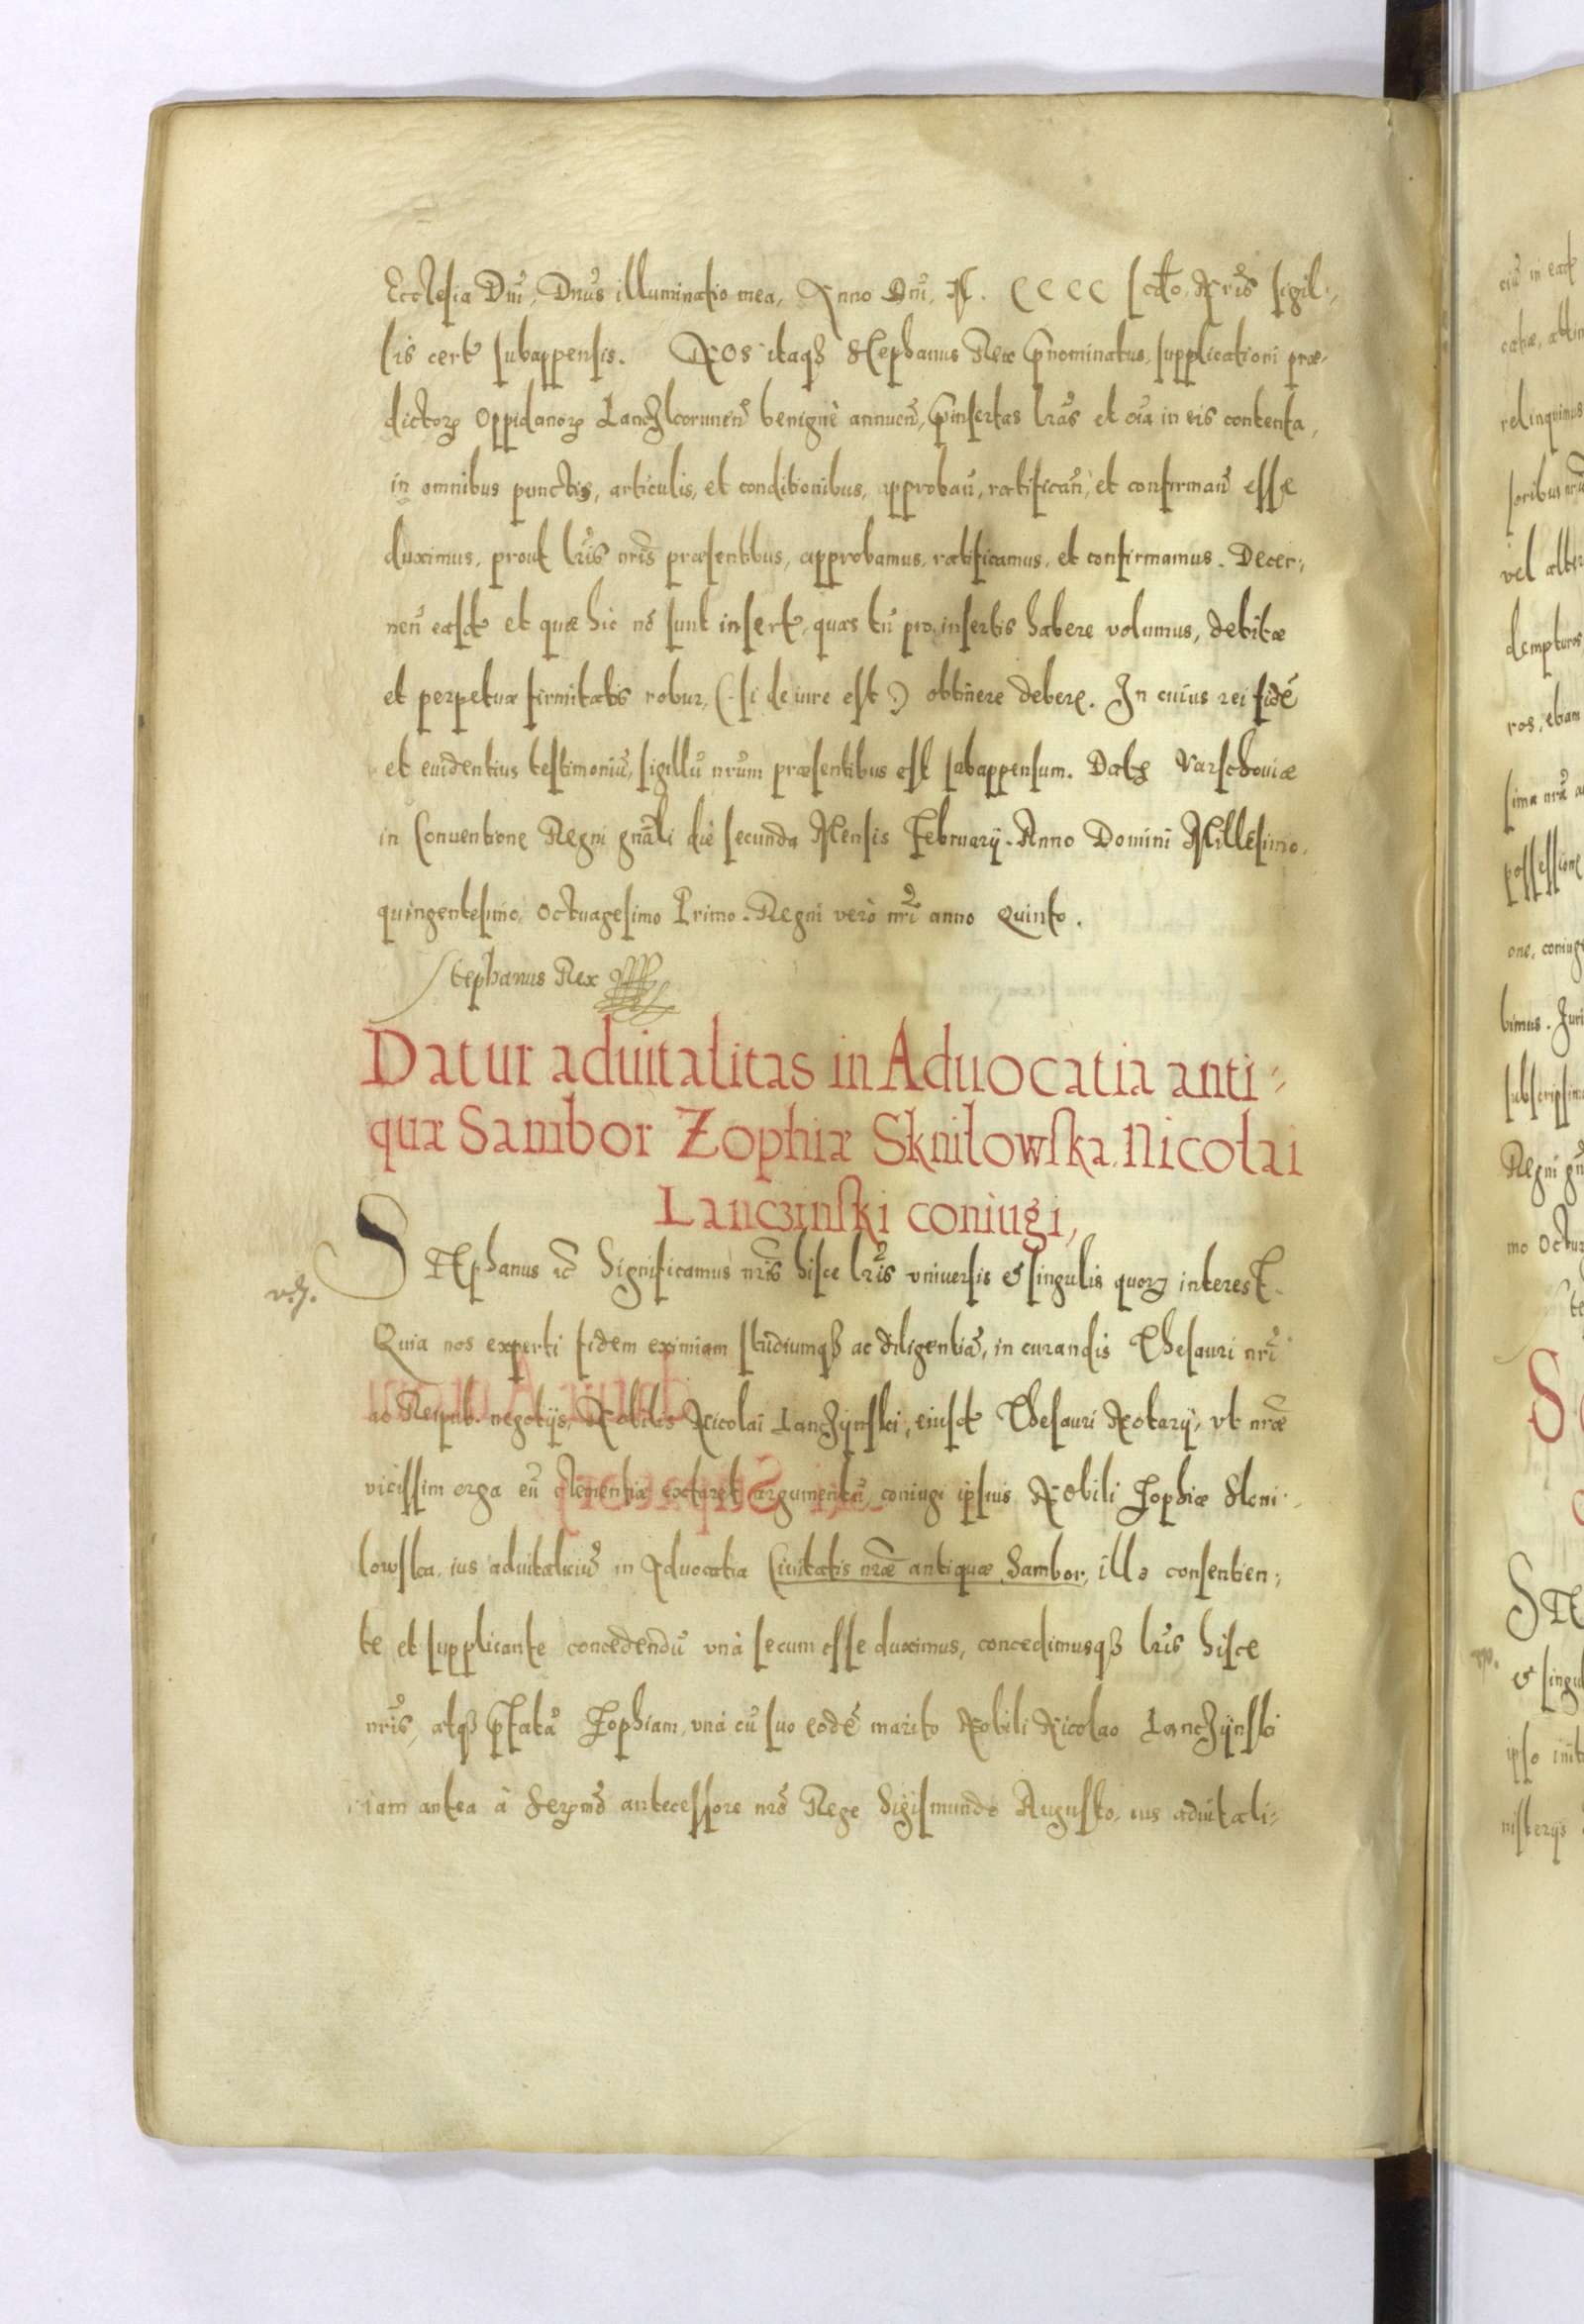 Ecclesia Dni, Dnus illuminatio mea, Anno Dni, M. CCCC scdo, Nris sigil-
lis cert subappensis. Nos itaqʒ Stephanus Rex pnominatus, supplicationi præ-
dictorꝫ Oppidanorꝫ Lanczkorunen benignè annuen, pinsertas lras et oia in eis contenta,
in omnibus punctis, articulis, et conditionibus, approban, ratifican, et confirman esse
duximus, prout lris nris præsentibus, approbamus, ratificamus, et confirmamus. Decer-
nen easd et quæ hic nō sunt insert, quas tn pro insertis habere volumus, debitæ
et perpetuæ firmitatis robur, (si de iure est) obtinere debere. In cuius rei fidē
et euidentius testimoniū, sigillū nrum præsentibus est subappensum. Datꝫ Varschouiæ
in Conuentione Regni gnāli die secunda Mensis February. Anno Domini Millesimo
quingentesimo, Octuagesimo Primo. Regni verò nri anno Quinto.
Stephanus Rex
Datur aduitalitas in Aduocatia anti-
quæ Sambor Zophiæ Skniłowska Nicolai
Lanczinski coniugi,
Stephanus ic̄ Significamus nris hisce lris vniuersis & singulis quorꝫ interest.
Quia nos experti fidem eximiam studiumqʒ ac diligentiā, in curandis Thesauri nri
ac Reipub. negotijs, Nobilis Nicolai Lanczynski, eiusd Thesauri Notarij, vt nræ
vicissim erga eū clementiæ extaret argumentū, coniugi ipsius Nobili Zophiæ Skni-
lowska, ius aduitalitiū in Aduocatia Ciuitatis nræ antiquæ Sambor, illo consentien-
te et supplicante concedendū vnà secum esse duximus, concedimusqʒ lris hisce
nris, atqʒ pfatā Zophiam, vnà cū suo eodē marito Nobili Nicolao Lanczynski
iam antea à Serꝫmo antecessore nro Rege Sigismundo Augusto, ius aduitali-